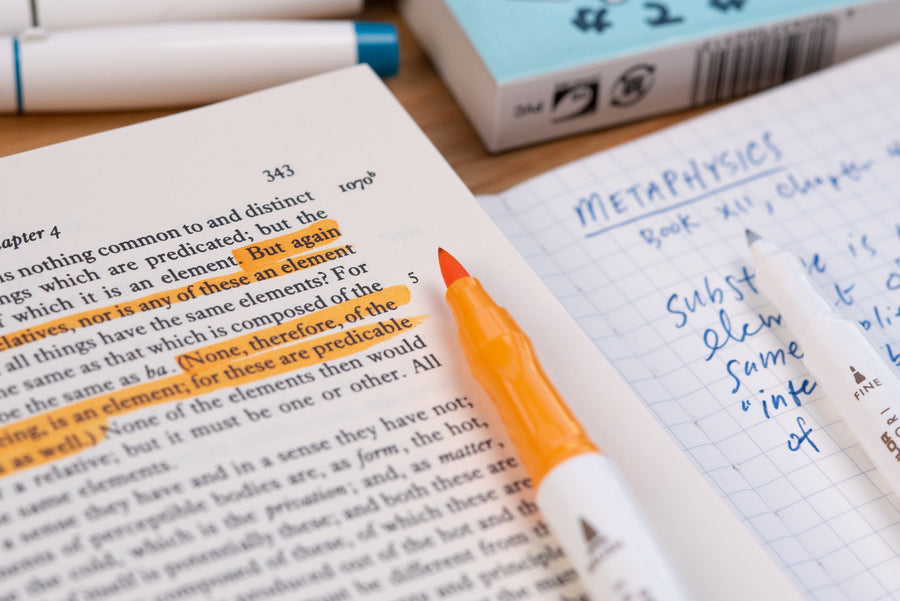 343
1070ᵇ
apter 4
is nothing common to and distinct
ngs which are predicated; but the
which it is an element. But again
relatives, nor is any of these an element
all things have the same elements? For
same as that which is composed of the
be the same as ba. (None, therefore, of the
5
eing, is an element; for these are predicable
s as well.) None of the elements then would
a relative; but it must be one or other. All
same elements.
sense they have and in a sense they have not;
of perceptible bodies are, as form, the hot,
the cold, which is the privation; and, as matter,
itself is potentially these; and both these are
composed of these, of which these are
produced out of the hot and the
must be different from
and
METAPHYSICS
Book XII, Chapter
subst e is
elem
same
"inte
of
FINE
# 2 #